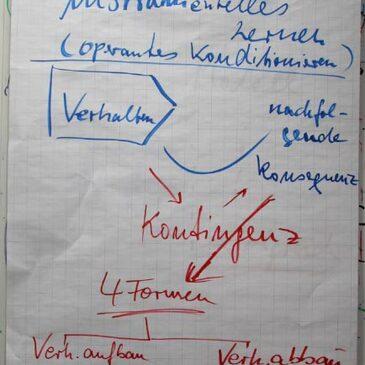 Instrumentelles
Lernen
(operantes Konditionieren)
Verhalten
nachfol-
gende
Konsequenz
Kontingenz
4 Formen
Verh.aufbau Verh.abbau